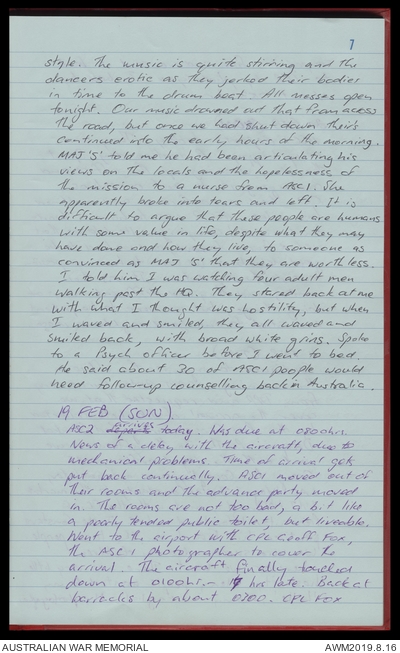 7
style. The music is quite stirring and the
dancers erotic as they jerked their bodies
in time to the drum beat. All messes open
tonight. Our music drowned out that from across
the road, but once we had shut down theirs
continued into the early hours of the morning.
MAJ 'S' told me he had been articulating his
views on the locals and the hopelessness of
the mission to a nurse from ASC1. She
apparently broke into tears and left. It is
difficult to argue that these people are humans
with some value in life, despite what they may
have done and how they live, to someone as
convinced as MAJ 'S' that they are worthless.
I told him I was watching four adult men
walking past the HQ. They stared back at me
with what I thought was hostility, but when
I waved and smiled, they all waved and
smiled back, with broad white grins. Spoke
to a Psych officer before I went to bed.
He said about 30 of ASC1 people would
need followup counselling back in Australia.
19 FEB (SUN)
arrives
ASC2 departs today. Was due at 0800hr.
News of a delay with the aircraft, due to
mechanical problems. Time of arrival gets
put back continually. ASC1 moved out of
their rooms and the advance party moved
in. The rooms are not too bad, a bit like
a poorly tended public toilet, but liveable.
Went to the airport with CPL Geoff Fox,
the ASC1 photographer to cover the
arrival. The aircraft finally touched
down at 0100hr - 17 hrs late. Back at
barracks by about 0700. CPL Fox
AUSTRALIAN WAR MEMORIAL
AWM2019.8.16